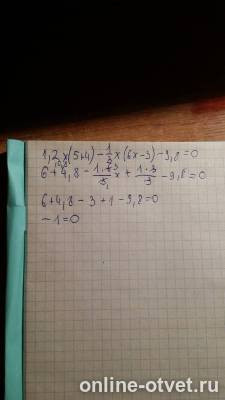 1,2x(5+4) - 1/3 x(6x-3) - 9,8=0
6+4,8 - 1·6/3 x + 1·3/3 - 9,8=0
6+4,8-3+1-9,8=0
-1=0
online-otvet.ru